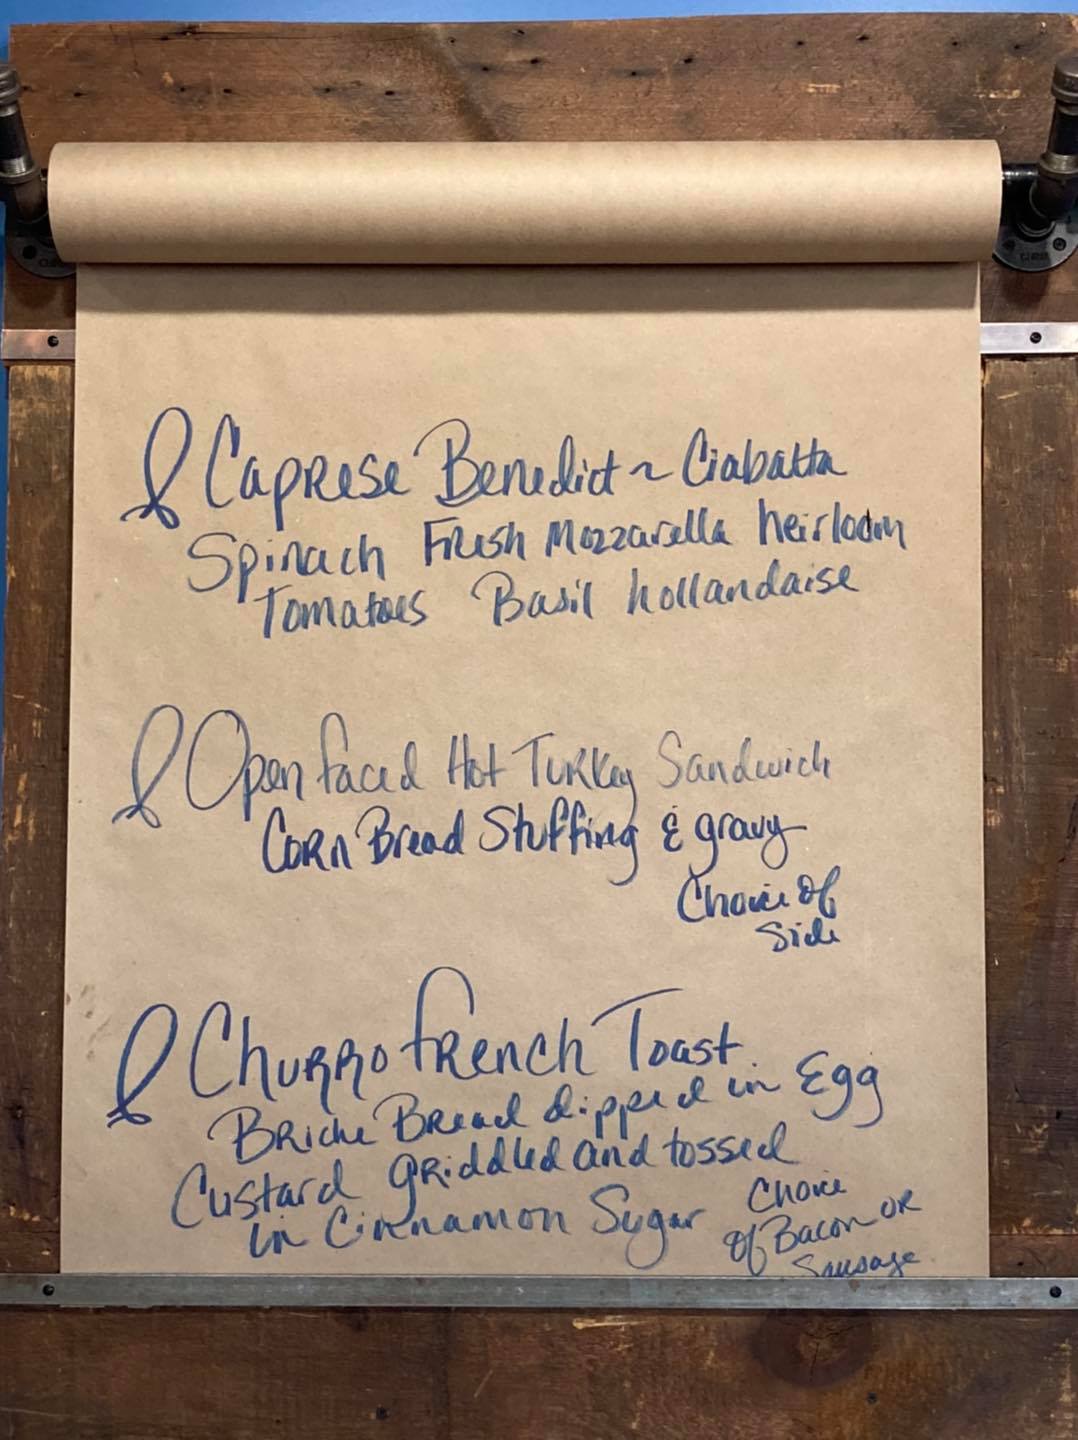 Caprese Benedict ~ Ciabatta
Spinach Fresh Mozzarella heirloom
Tomatoes Basil hollandaise
Open faced Hot Turkey Sandwich
Corn Bread Stuffing & gravy
Choice of
Side
Churro french Toast
Brioche Bread dipped in Egg
Custard griddled and tossed
in Cinnamon Sugar
Choice
of Bacon or
Sausage